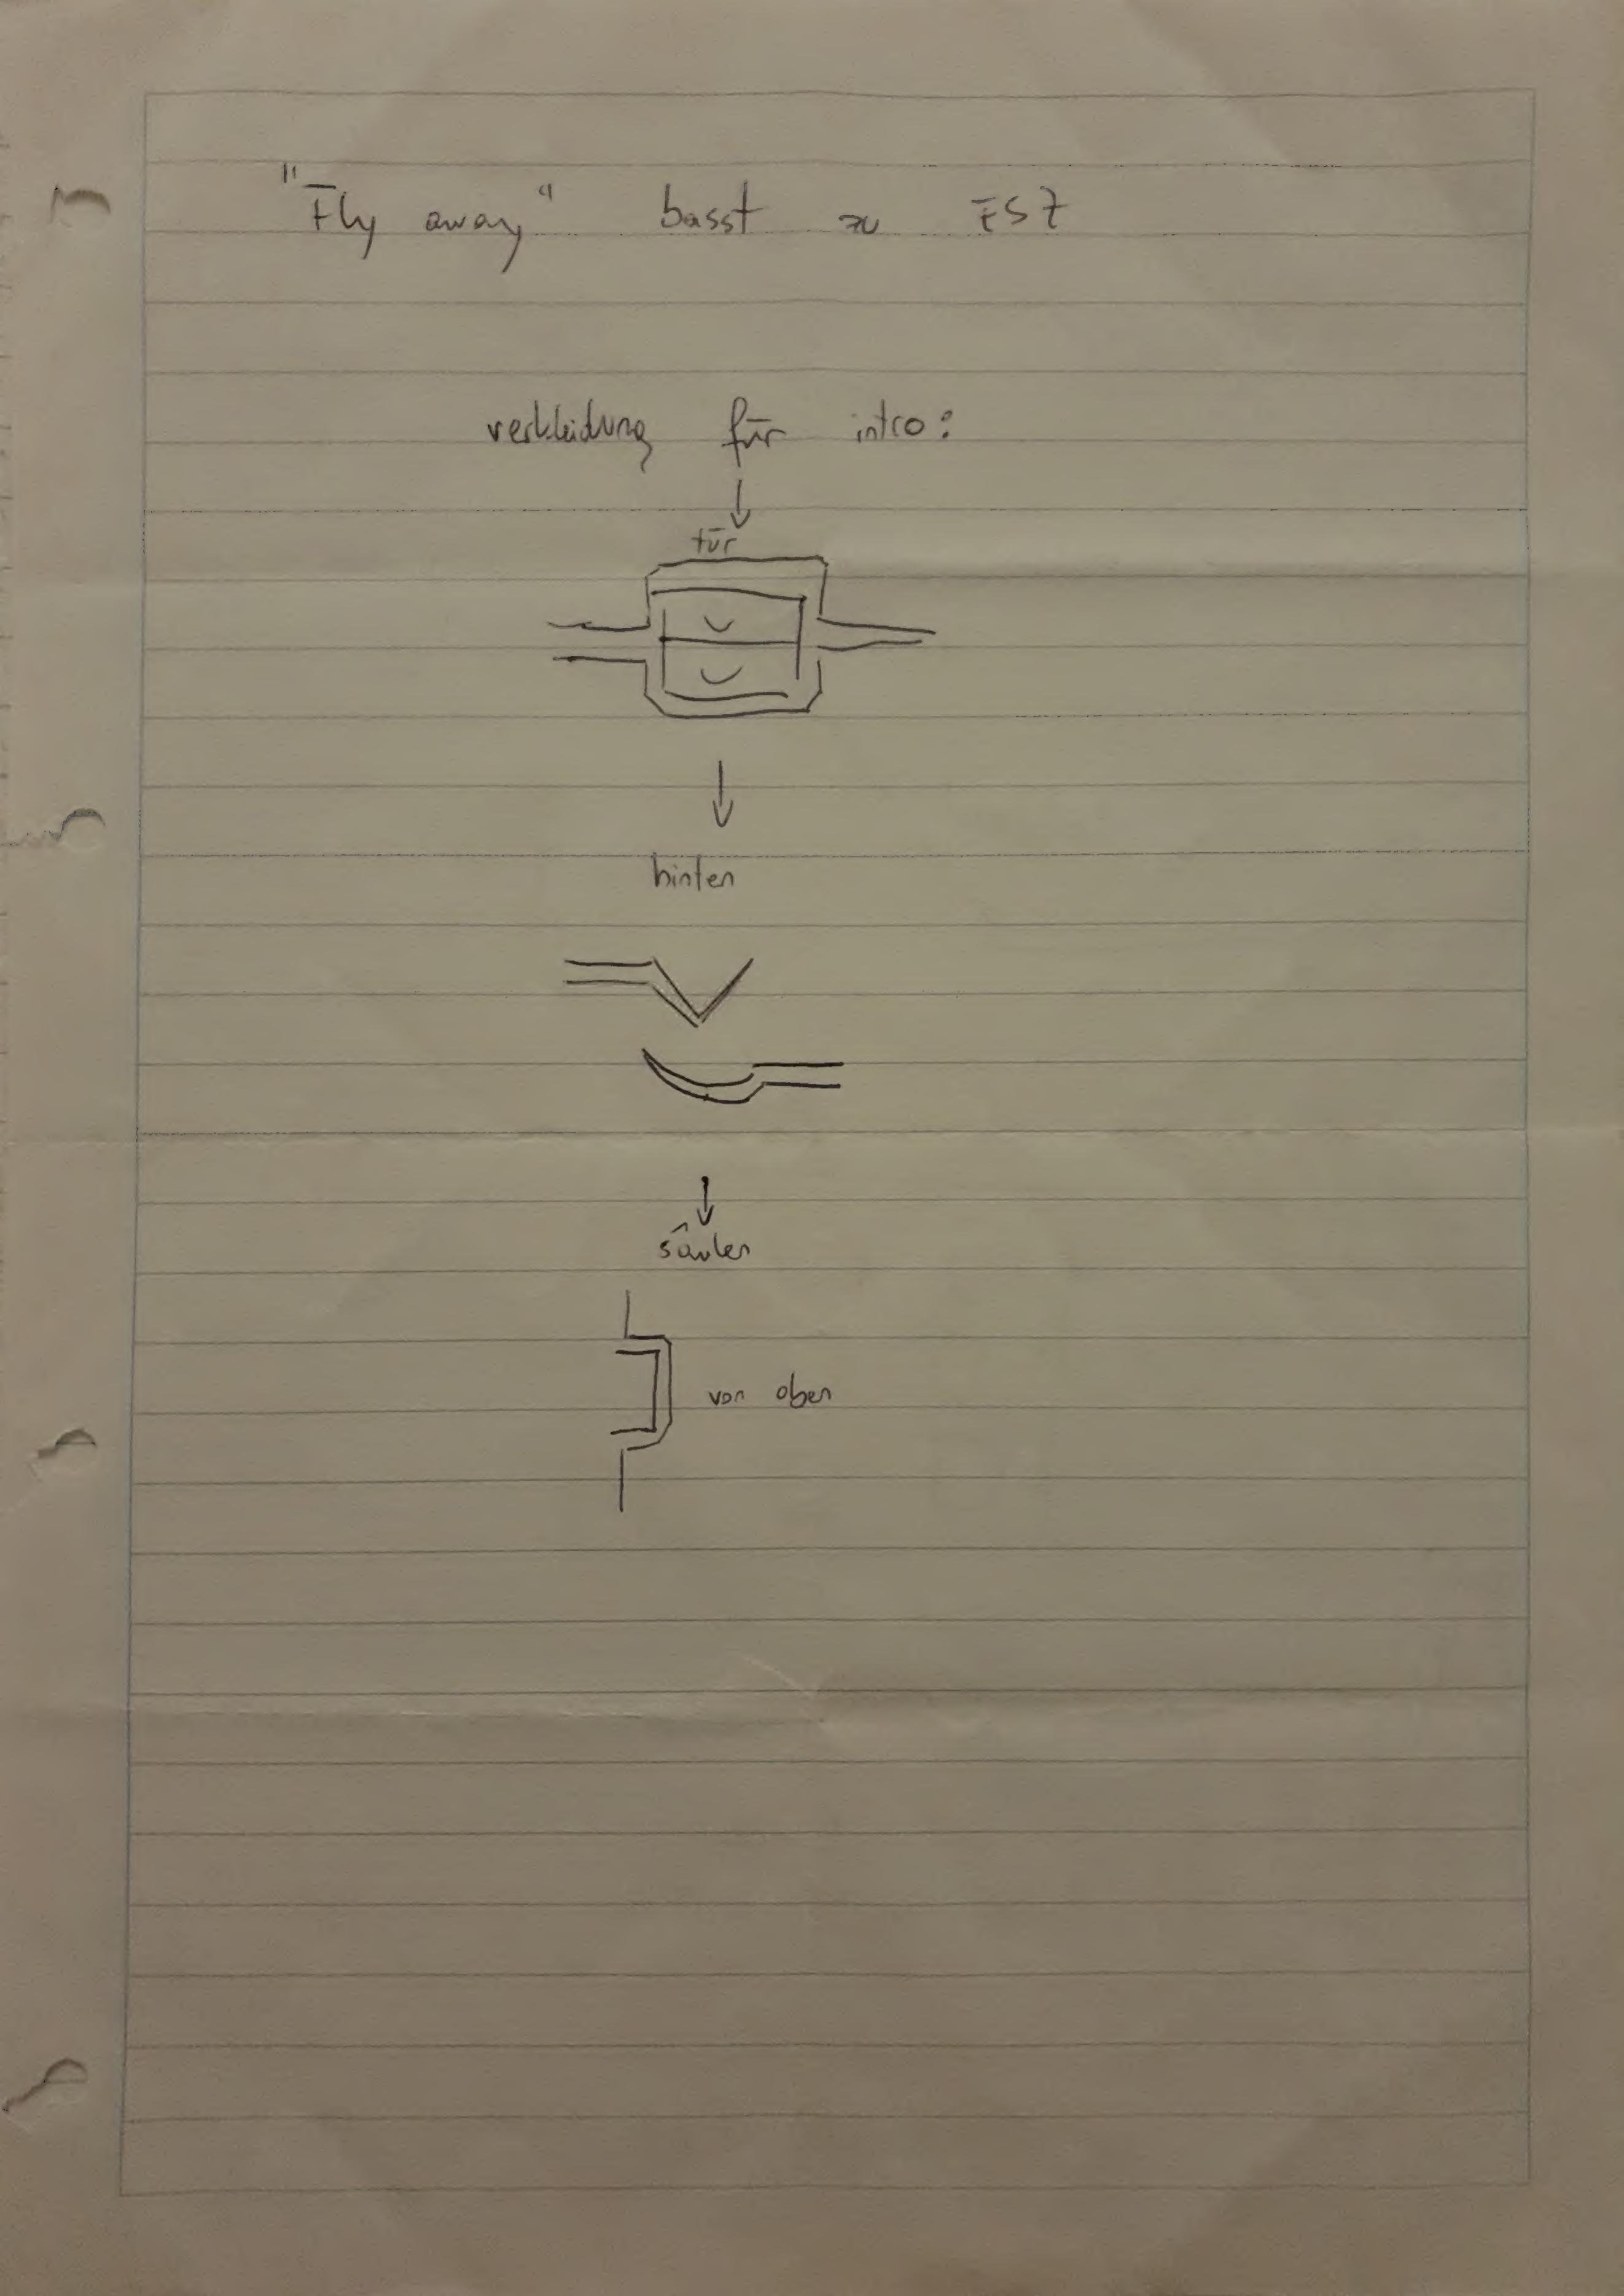 "Fly away" basst zu FSZ
verkleidung für intro:
tür
hinten
säulen
von oben